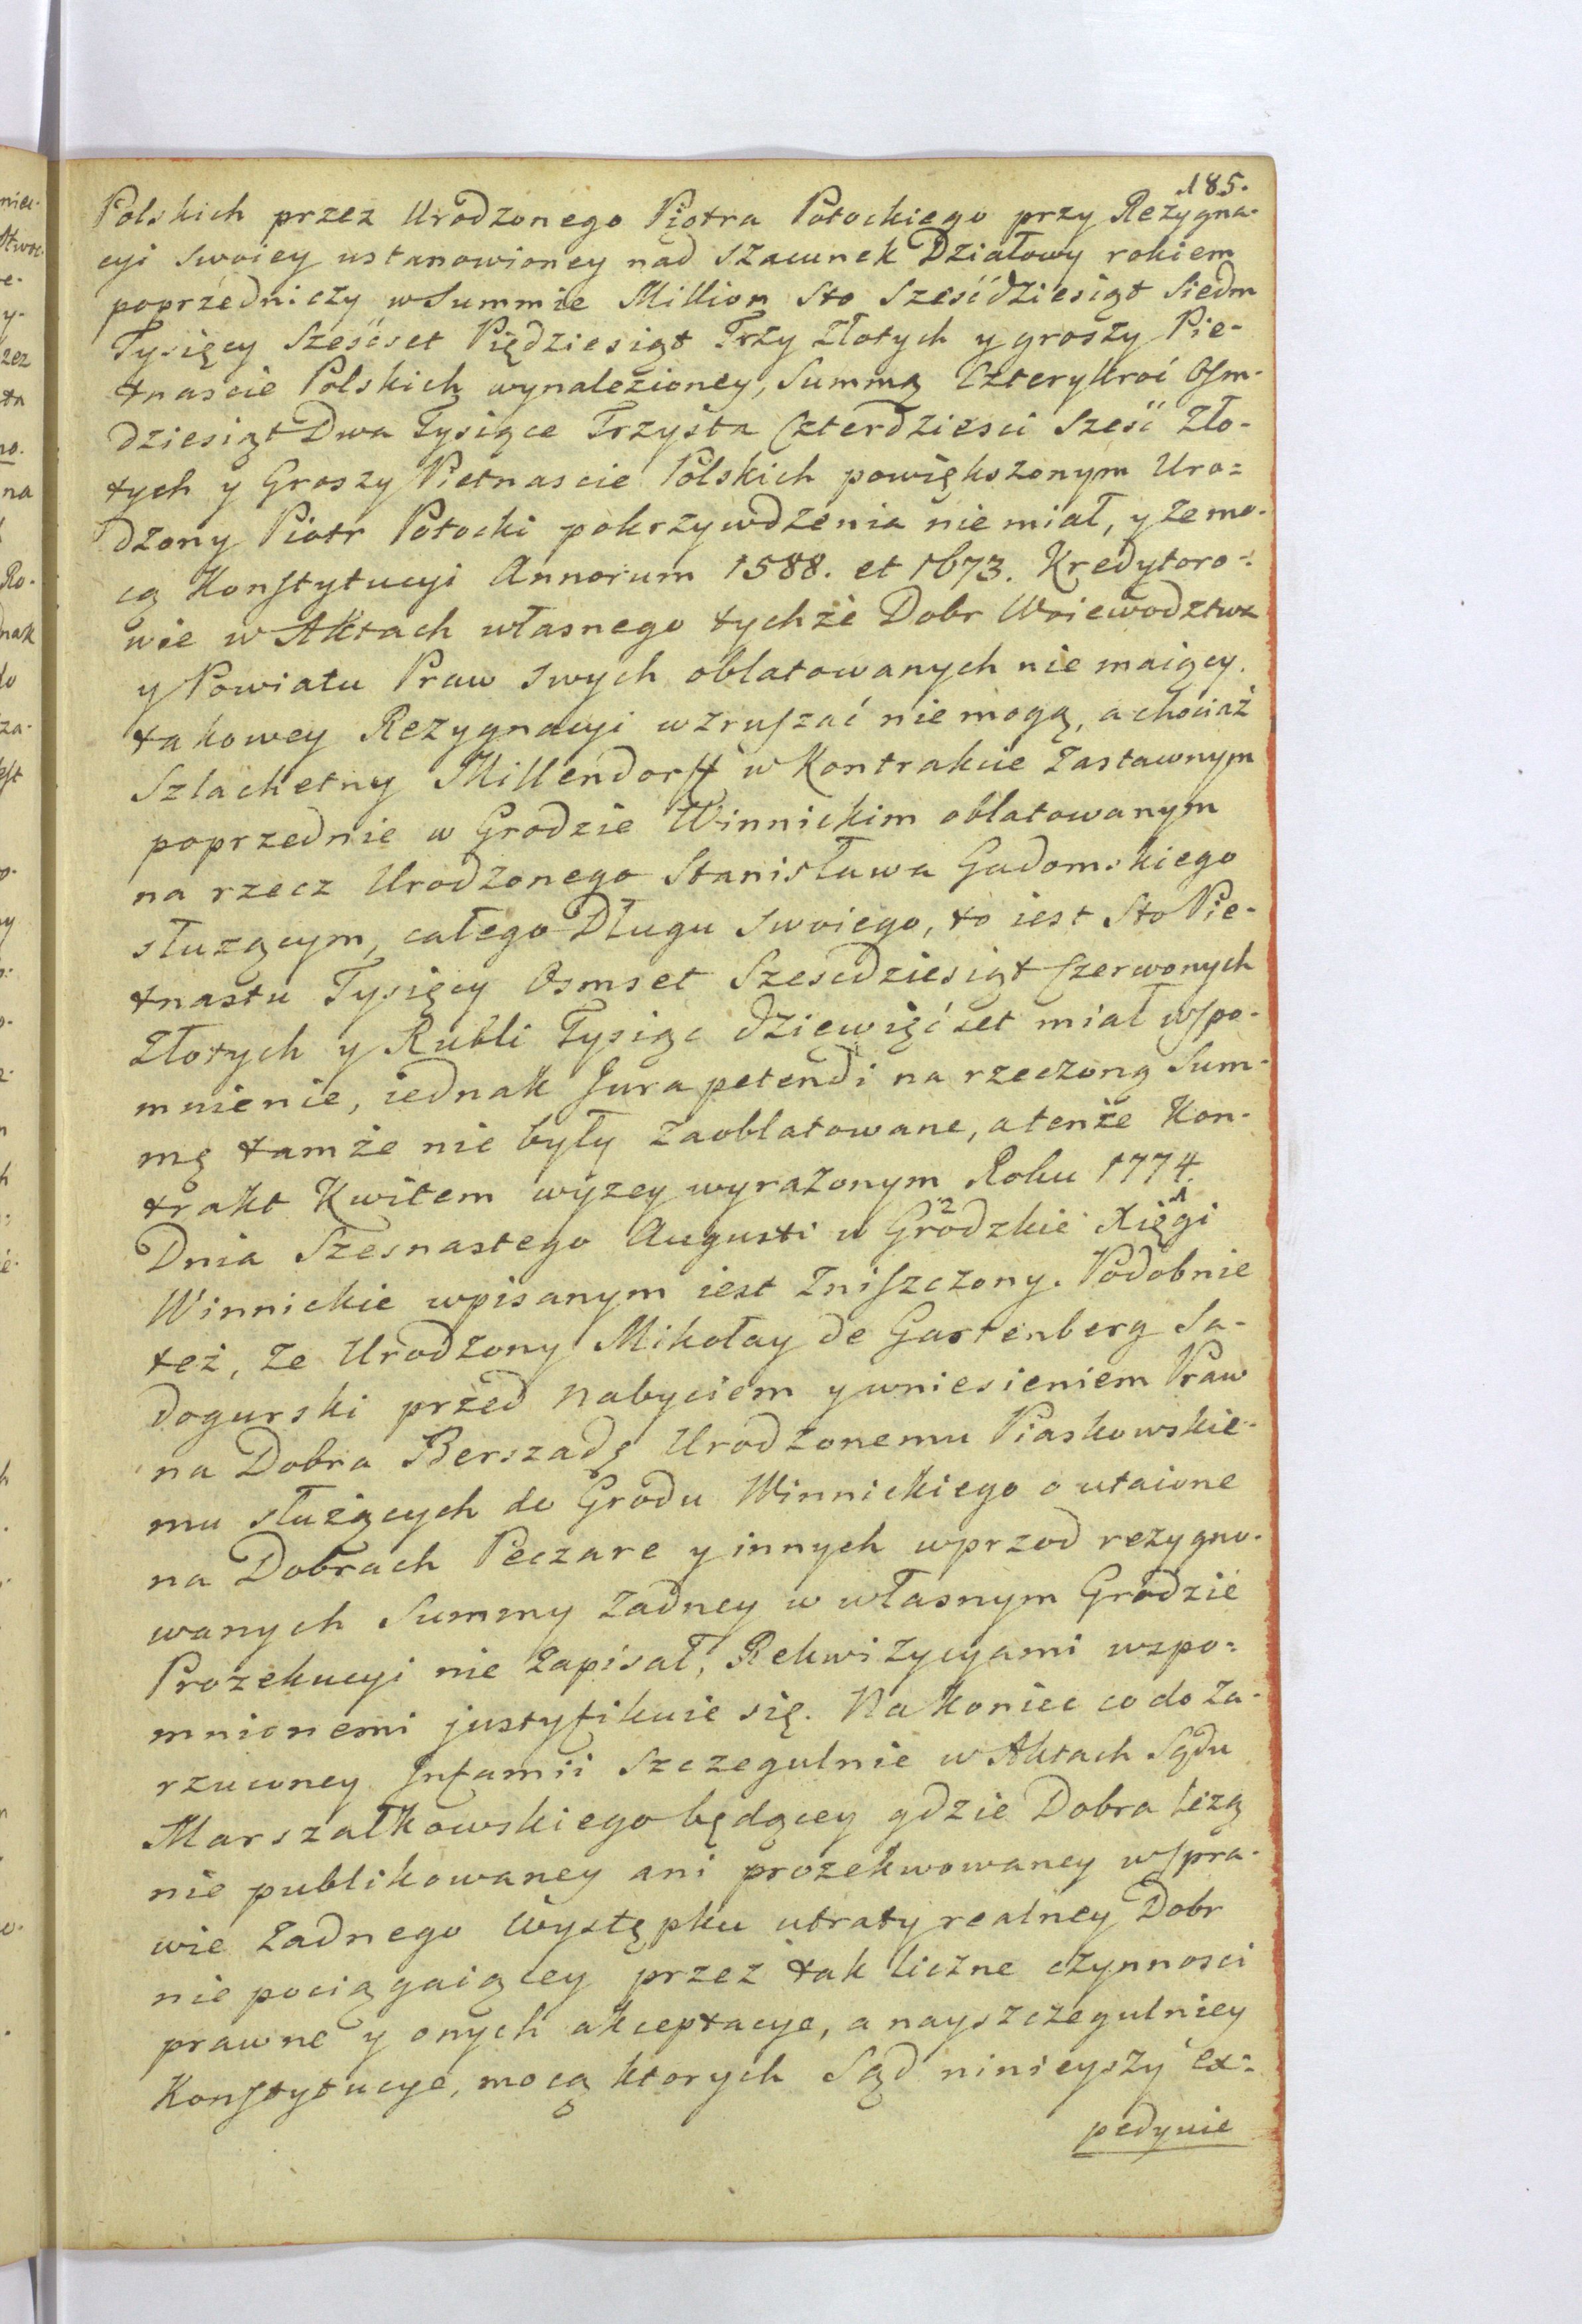 185.
Polskich przez Urodzonego Piotra Potockiego przy Rezygna-
cyi swoiey ustanowioney nad szacunek Działowy rokiem
poprzedniczy w Summie Million Sto Sześćdziesiąt Siedm
Tysięcy Sześćset Pięćdziesiąt Trzy Złotych y groszy Pie-
tnascie Polskich wynalezioney, Summą Czterykroć Osm-
dziesiąt Dwa Tysiące Trzysta Czterdziesci Sześć Zło-
tych y Groszy Pietnascie Polskich powiększonym Uro-
dzony Piotr Potocki pokrzywdzenia nie miał, y ze mo-
cą Konstytucyi Annorum 1588. et 1673. Kredytoro-
wie w Aktach własnego tychże Dobr Woiewodztwa
y Powiatu Praw swych oblatowanych nie maiący.
takowey Rezygnacyi wzruszać nie mogą, a chociaż
Szlachetny Millendorff w Kontrakcie Zastawnym
poprzednie w Grodzie Winnickim oblatowanym
na rzecz Urodzonego Stanisława Gadomskiego
służącym, całego Długu swoiego, to iest Sto Pie-
tnastu Tysięcy Osmset Szescdziesiąt Czerwonych
Złotych y Rubli Tysiąc dziewięćset miał wspo-
mnienie, iednak Jura petendi na rzeczoną Sum-
mę tamże nie były zaoblatowane, a tenże Kon-
trakt Kwitem wyżey wyrażonym Roku 1774.
Dnia Szesnastego Augusti w Grodzkie Xięgi
Winnickie wpisanym iest Zniszczony. Podobnie
też, ze Urodzony Mikołay de Gartenberg Sa-
dogurski przed nabyciem y wniesieniem Praw
na Dobra Berszadę Urodzonemu Piaskowskie-
mu służących do Grodu Winnickiego o utaione
na Dobrach Peczare y innych wprzod rezygno-
wanych Summy żadney w własnym Grodzie
Prozekucyi nie zapisał, Rekwizycyami wspo-
mnionemi justyfikuie się. Nakoniec co do za-
rzuconey Infamii szczegulnie w Aktach Sądu
Marszałkowskiego będącey gdzie Dobra leżą
nie publikowaney ani prozekwowaney w spra-
wie żadnego Występku utraty realney Dobr
nie pociągaiącey przez tak liczne czynnosci
prawne y onych akceptacye, a nayszczegulniey
Konstytucye, mocą ktorych Sąd ninieyszy ex-
pedyuie